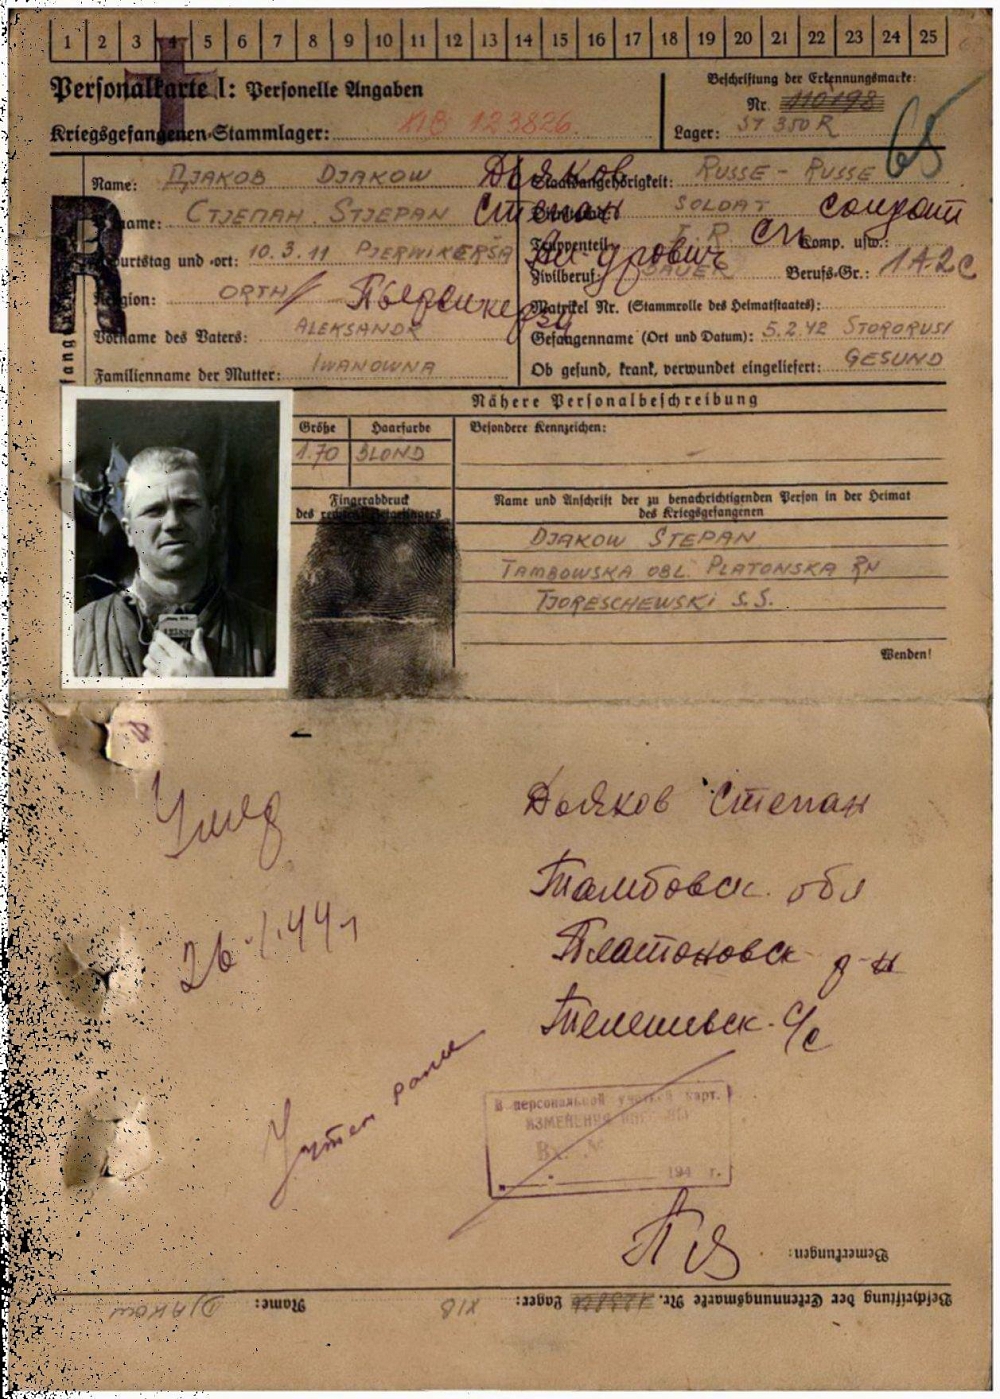 1 2 3 4 5 6 7 8 9 10 11 12 13 14 15 16 17 18 19 20 21 22 23 24 25
Personalkarte I: Personelle Angaben
Beschriftung der Erkennungsmarke:
Nr. 110198
Kriegsgefangenen-Stammlager: XIB 123826
Lager: ST 350 R
65
Name: DJAKOW Дьяков
Staatsangehörigkeit: RUSSE - RUSSE
Vorname: СТJЕПАН STJEPAN Степан
Dienstgrad: SOLDAT солдат
Geburtstag und -ort: 10.3.11 PJERWIKERŠA
Truppenteil: I.R Komp. usw.:
Zivilberuf: BAUER Berufs-Gr.: 1A-2C
Religion: ORTH
Matrikel Nr. (Stammrolle des Heimatstaates):
Vorname des Vaters: ALEKSANDR
Gefangenname (Ort und Datum): 5.2.42 STORORUSI
Familienname der Mutter: IWANOWNA
Ob gesund, krank, verwundet eingeliefert: GESUND
R
Nähere Personalbeschreibung
Größe Haarfarbe Besondere Kennzeichen:
1.70 BLOND
Fingerabdruck
des rechten Zeigefingers
Name und Anschrift der zu benachrichtigenden Person in der Heimat
des Kriegsgefangenen
DJAKOW STEPAN
TAMBOWSKA OBL. PLATONSKA RN
TJORESCHEWSKI S.S.
Wenden!
Дьяков Степан
Тамбовск. обл
Платоновск р-н
Телешевск. с/с
26.1.44 г
Учтен ране
В персональной учетной карт.
ИЗМЕНЕНИЯ ВНЕСЕНЫ
Вх. №
194 г.
Bemerkungen:
Beschriftung der Erkennungsmarke Nr. Lager: XIB Name: DJAKOW